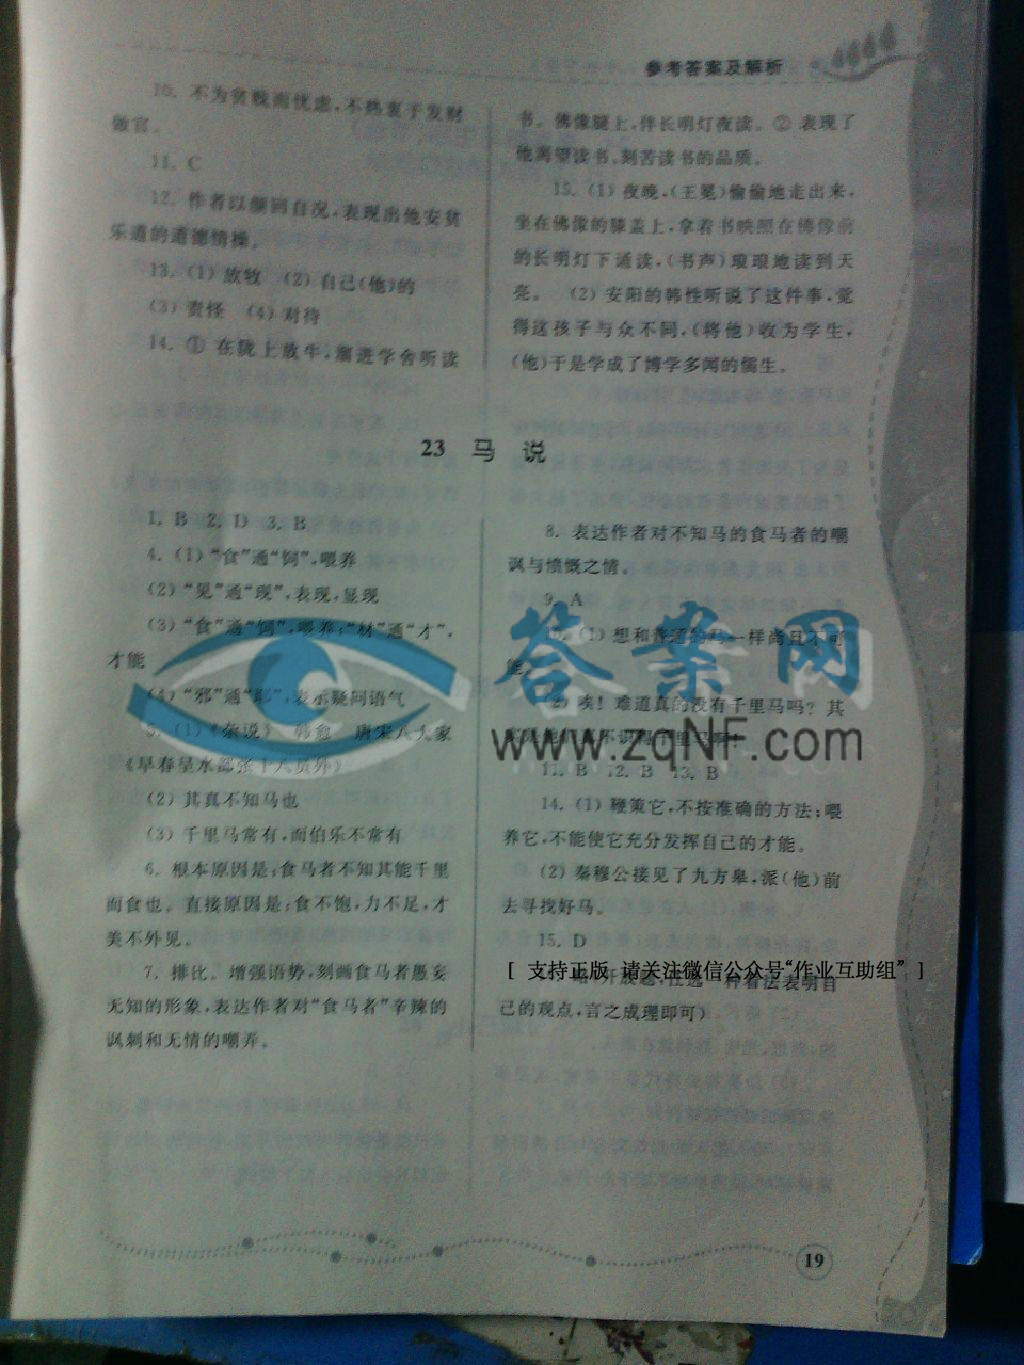 参考答案及解析
10. 不为贫贱而忧虑,不热衷于发财
做官。
11. C
12. 作者以颜回自况,表现出他安贫
乐道的道德情操。
13. (1) 放牧 (2) 自己(他)的
(3) 责怪 (4) 对待
14. ① 在陇上放牛,溜进学舍听读
书。佛像腿上,伴长明灯夜读。② 表现了
他渴望读书、刻苦读书的品质。
15. (1) 夜晚,(王冕)偷偷地走出来,
坐在佛像的膝盖上,拿着书映照在佛像前
的长明灯下诵读,(书声)琅琅地读到天
亮。 (2) 安阳的韩性听说了这件事,觉
得这孩子与众不同,(将他)收为学生,
(他)于是学成了博学多闻的儒生。
23 马 说
1. B 2. D 3. B
4. (1)“食”通“饲”,喂养
(2)“见”通“现”,表现,显现
(3)“食”通“饲”,喂养;“材”通“才”,
才能
(4)“邪”通“耶”,表示疑问语气
5. (1)《杂说》 韩愈 唐宋八大家
《早春呈水部张十八员外》
(2) 其真不知马也
(3) 千里马常有,而伯乐不常有
6. 根本原因是:食马者不知其能千里
而食也。直接原因是:食不饱,力不足,才
美不外见。
7. 排比。增强语势,刻画食马者愚妄
无知的形象,表达作者对“食马者”辛辣的
讽刺和无情的嘲弄。
8. 表达作者对不知马的食马者的嘲
讽与愤慨之情。
9. A
10. (1) 想和普通的马一样尚且不可
能。
(2) 唉!难道真的没有千里马吗?其
11. B 12. B 13. B
14. (1) 鞭策它,不按准确的方法;喂
养它,不能使它充分发挥自己的才能。
(2) 秦穆公接见了九方皋,派(他)前
去寻找好马。
15. D
略(开放题,任选一种看法表明自
己的观点,言之成理即可)
答案网
www.zqNF.com
[ 支持正版 请关注微信公众号“作业互助组” ]
19